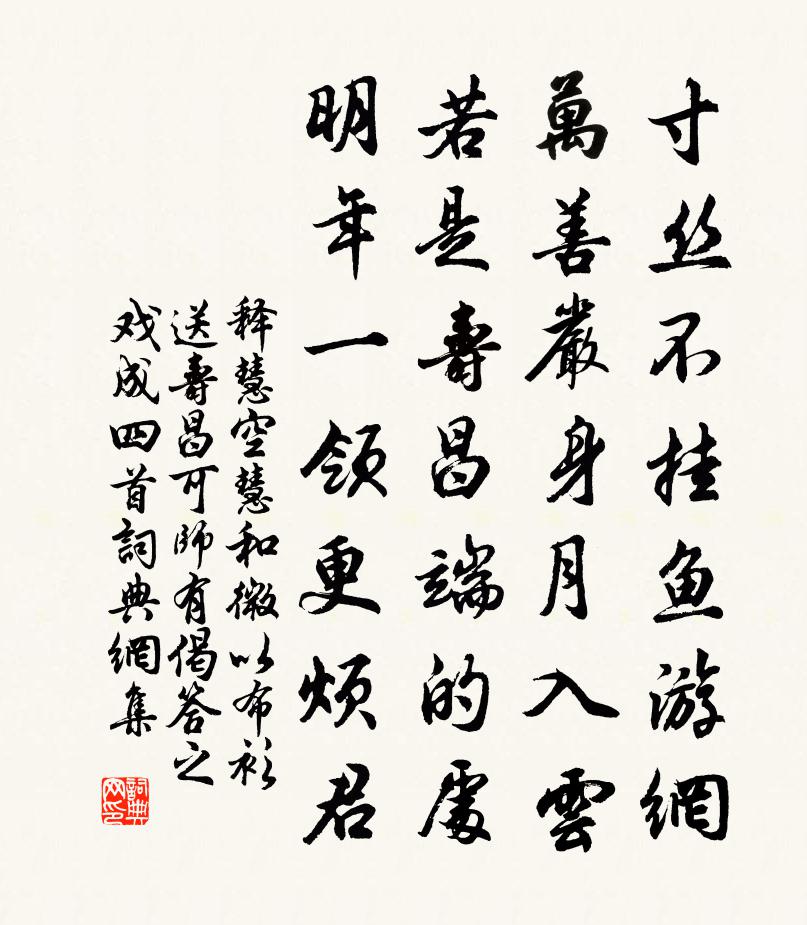 寸丝不挂鱼游網
萬善嚴身月入雲
若是壽昌端的處
明年一领更烦君
释慧空慧和徽以布衫
送壽昌可师有偈答之
戏成四首詞典網集
詞典